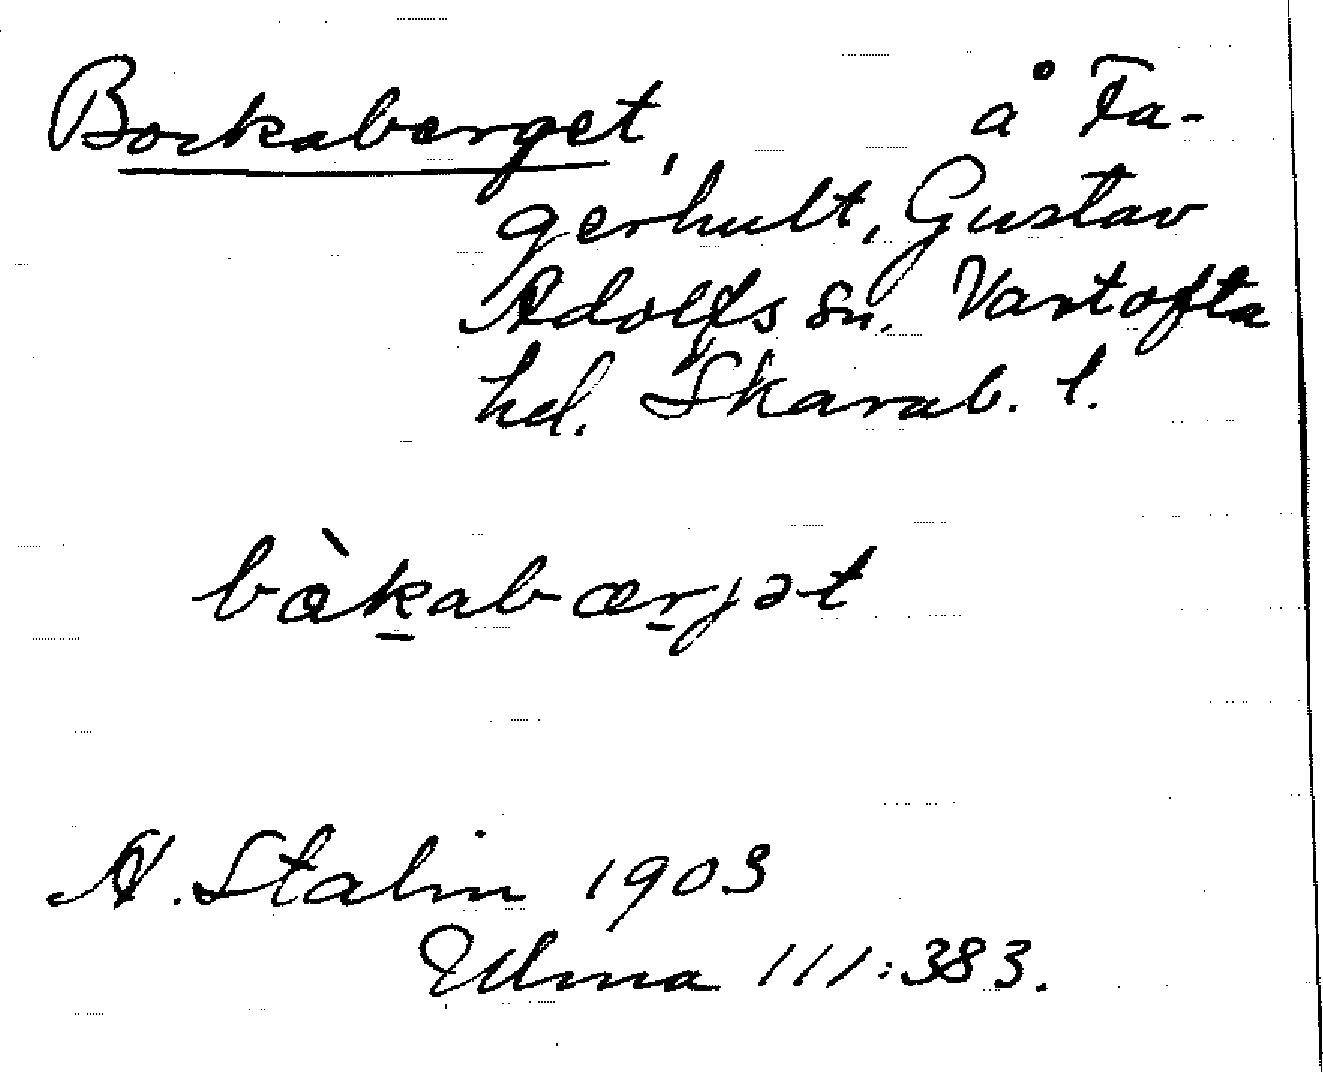 Bockaberget, å Fa-
gerhult, Gustav
Adolfs sn. Vartofta
hd. Skarab. l.
bàkabærjət
A. Stalin 1903
Ulma 111:383.